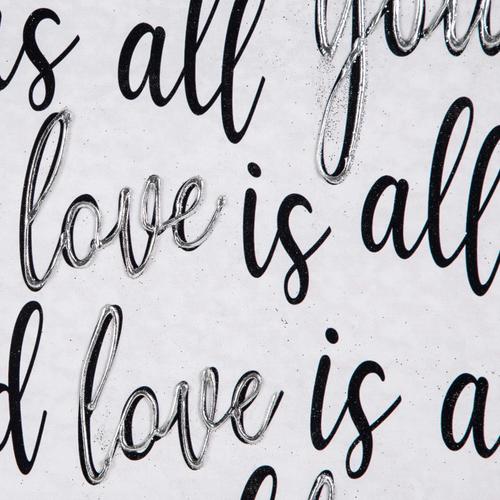 is all you
love is all
love is